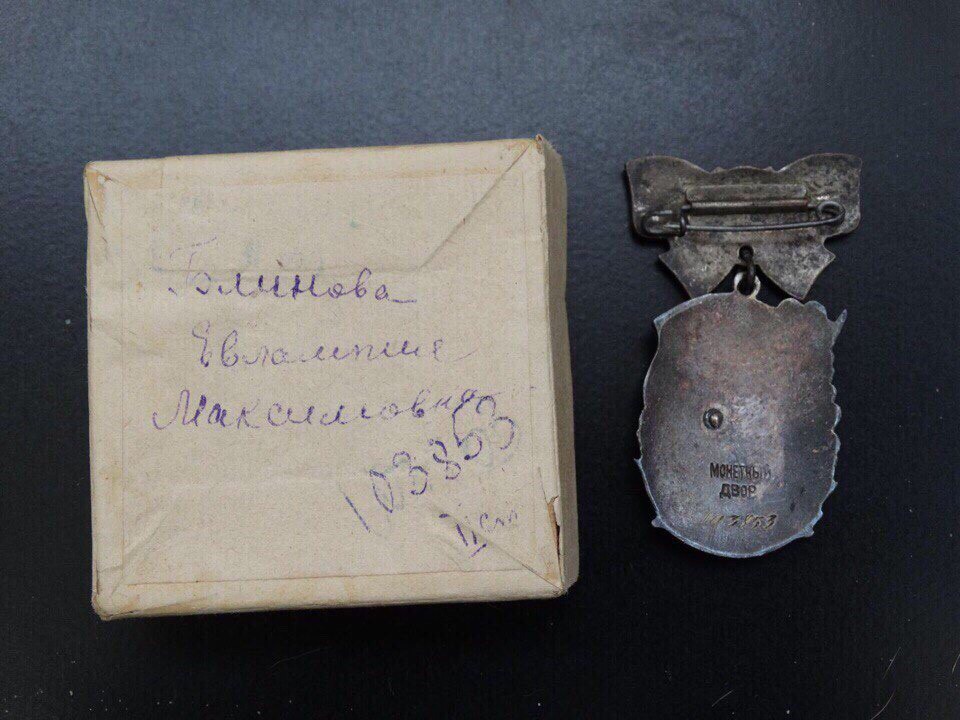 Блинова
Евлампия
Максимовна
103853
II ст
МОНЕТНЫЙ
ДВОР